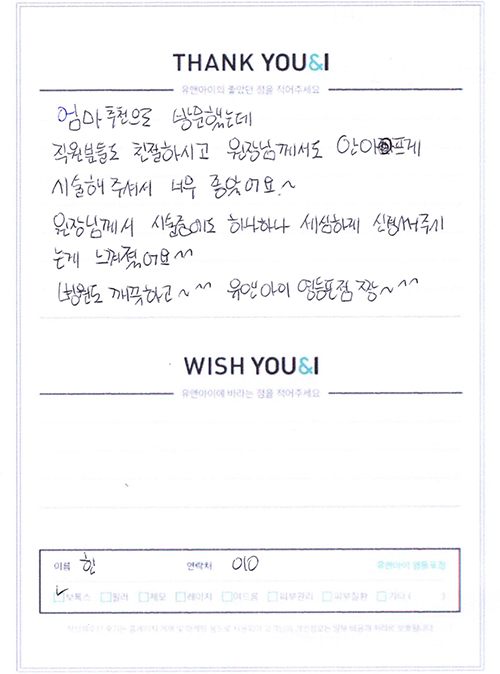 THANK YOU&I
유앤아이의 좋았던 점을 적어주세요
엄마 추천으로 방문했는데
직원분들도 친절하시고 원장님께서도 안아프게
시술해 주셔서 너무 좋았어요.~
원장님께서 시술중에도 하나하나 세심하게 신경써주시
는게 느껴졌어요^^
병원도 깨끗하고~^^ 유앤아이 영등포점 짱~^^
WISH YOU&I
유앤아이에 바라는 점을 적어주세요
이름 한 연락처 010 유앤아이 영등포점
✓보톡스 □필러 □제모 □레이저 □여드름 □피부관리 □피부질환 □기타 ( )